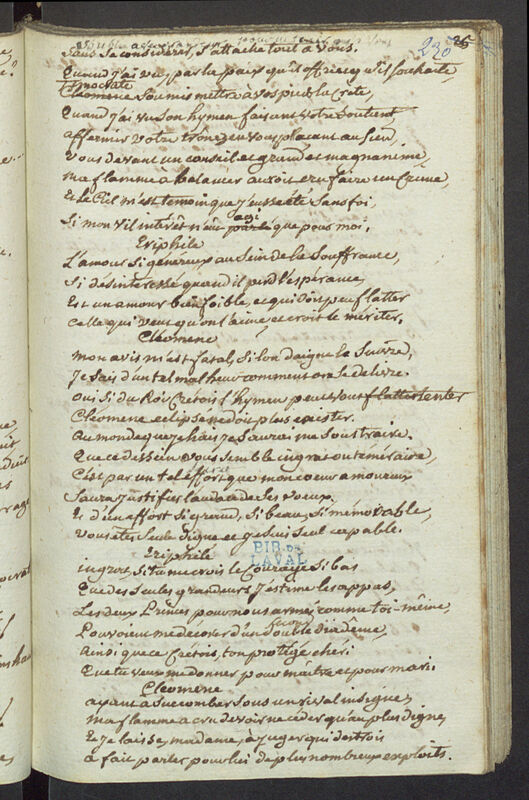 230 26
Sans se considerer, s'attache tout a vous.
Quand j'ai vu, par la paix qu'il offre et qu'il souhaite
Timocrate
Cleomene soumis mettre à vos pieds la Crete,
Quand j'ai vu son hymen faisant votre soutient
affermir votre trône en vous placant au sien
Vous devant un conseil et grand et magnanime,
ma flamme a balancer auroit cru faire un Crime,
Et le Ciel m'est temoin que j'eusse été sans foi,
Si mon vil interêt n'eut parlé que pour moi.
agi
Eriphile
L'amour si genereux au sein de la souffrance,
Si désinteressé quand il perd l'espérance,
Est un amour bien foible, et qui doit peu flatter
Celle qui veut qu'on l'aime, et croit le mériter.
Cleomene
mon avis m'est fatal, si l'on daigne le suivre,
Je sais d'un tel malheur comment on se delivre.
Oui si du Roi Cretois l'hymen peut vous flatter tenter
Cleomene eclipse ne doit plus exister.
Au monde que je hais je saurai me soustraire.
Que ce dessein vous semble ingrat ou temeraire,
C'est par un tel effort que mon coeur amoureux
Saura justifier l'audace de ses voeux.
Et d'un effort si grand, si beau, si mémorable,
Vous êtes seule digne et je suis seul capable.
Eriphile
BIB. DE
LAVAL
ingrat, si tu me crois le Courage si bas
Que des seules grandeurs j'estime les appas,
Les deux Princes pour nous armés comme toi-même,
Pouvoient me décorer d'un double diadême,
Ainsi que ce Cretois, ton protégé cheri
Que tu veux me donner pour maitre et pour mari.
Cleomene
ayant a succomber sous un rival insigne,
ma flamme a cru devoir ne céder qu'au plus digne,
Et je laisse, madame, à juger qui des trois
a fait parler pour lui de plus nombreux exploits.